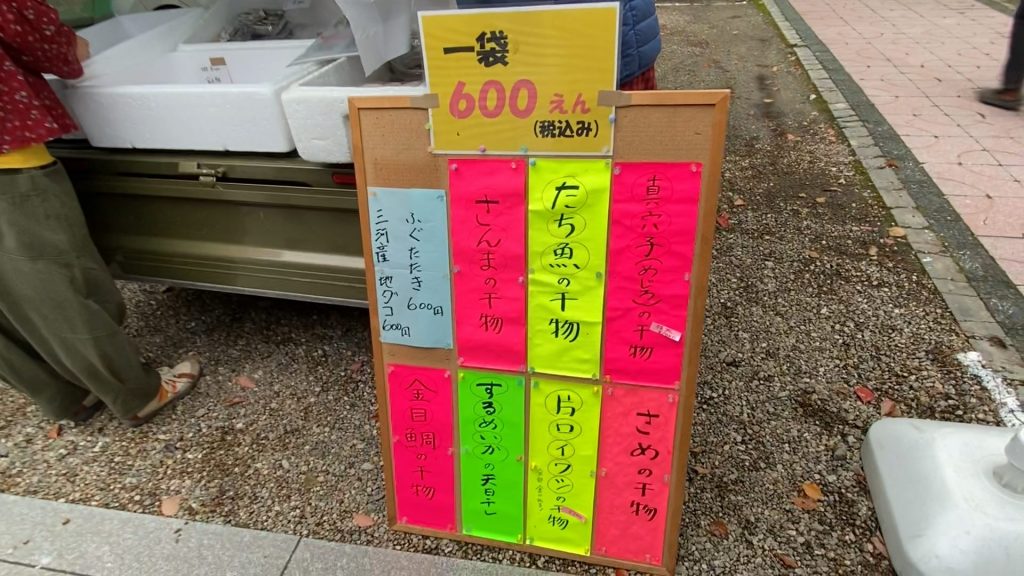 一袋
600えん
(税込み)
真穴子(めじろ)の干物
たち魚の干物
さんまの干物
ふぐたたき 600円
三河産 地ダコ 600円
さめの干物
片口イワシの干物
するめいかの天日干し
金目鯛の干物